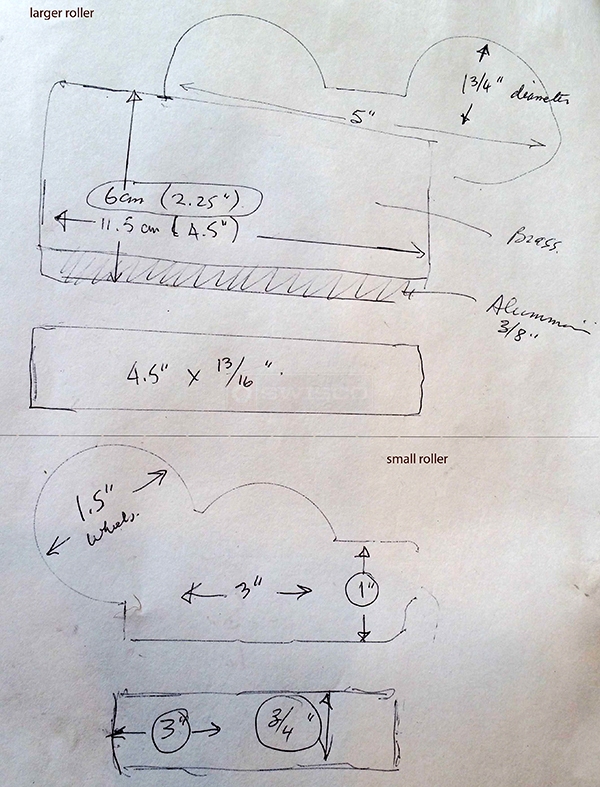 larger roller
1 3/4" diameter
5"
6cm (2.25")
11.5 cm (4.5")
Brass.
Aluminum
3/8"
4.5" x 13/16".
small roller
1.5"
Wheels.
3"
1"
3"
3/4"